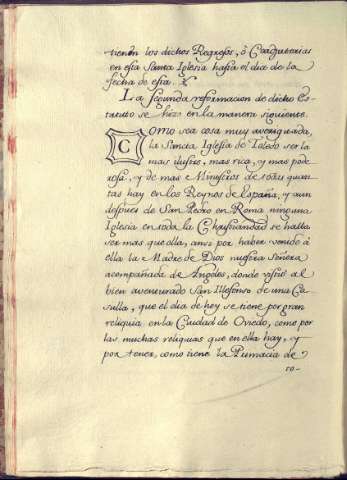 tienen los dichos Regresos, ò Coadjutorias
en esta Santa Iglesia hasta el dia de la
fecha de esta.
La segunda reformacion de dicho Es-
tatuto se hizo en la manera siguiente.
Como sea cosa muy averiguada,
la Sancta Iglesia de Toledo ser la
mas ilustre, mas rica, y mas pode
rosa, y de mas Ministros de todas quan
tas hay en los Reynos de España, y aun
despues de San Pedro en Roma ninguna
Iglesia en toda la Christiandad se halla
ser mas que ella, ansi por haber venido à
ella la Madre de Dios nuestra Señora
acompañada de Angeles, donde vistiò al
bien aventurado San Illefonso de una Ca-
sulla, que el dia de hoy se tiene por gran
reliquia en la Ciudad de Oviedo, como por
las muchas reliquias que en ella hay, y
por tener, como tiene la Primacia de
to-